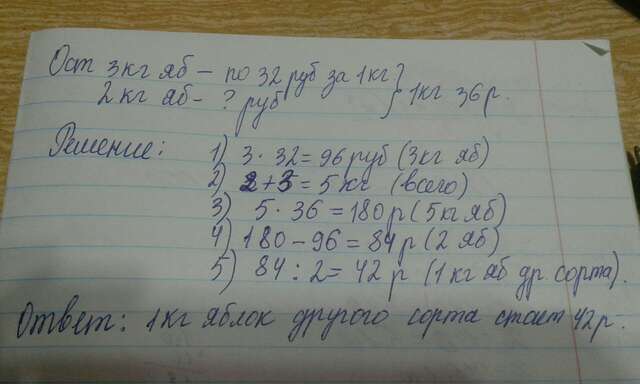 Ост 3кг яб – по 32 руб за 1кг } 1кг 36р.
2 кг яб - ? руб
Решение:
1) 3 · 32 = 96 руб (3кг яб)
2) 2 + 3 = 5 кг (всего)
3) 5 · 36 = 180 р (5кг яб)
4) 180 – 96 = 84 р (2 яб)
5) 84 : 2 = 42 р (1 кг яб др. сорта).
Ответ: 1кг яблок другого сорта стоит 42р.